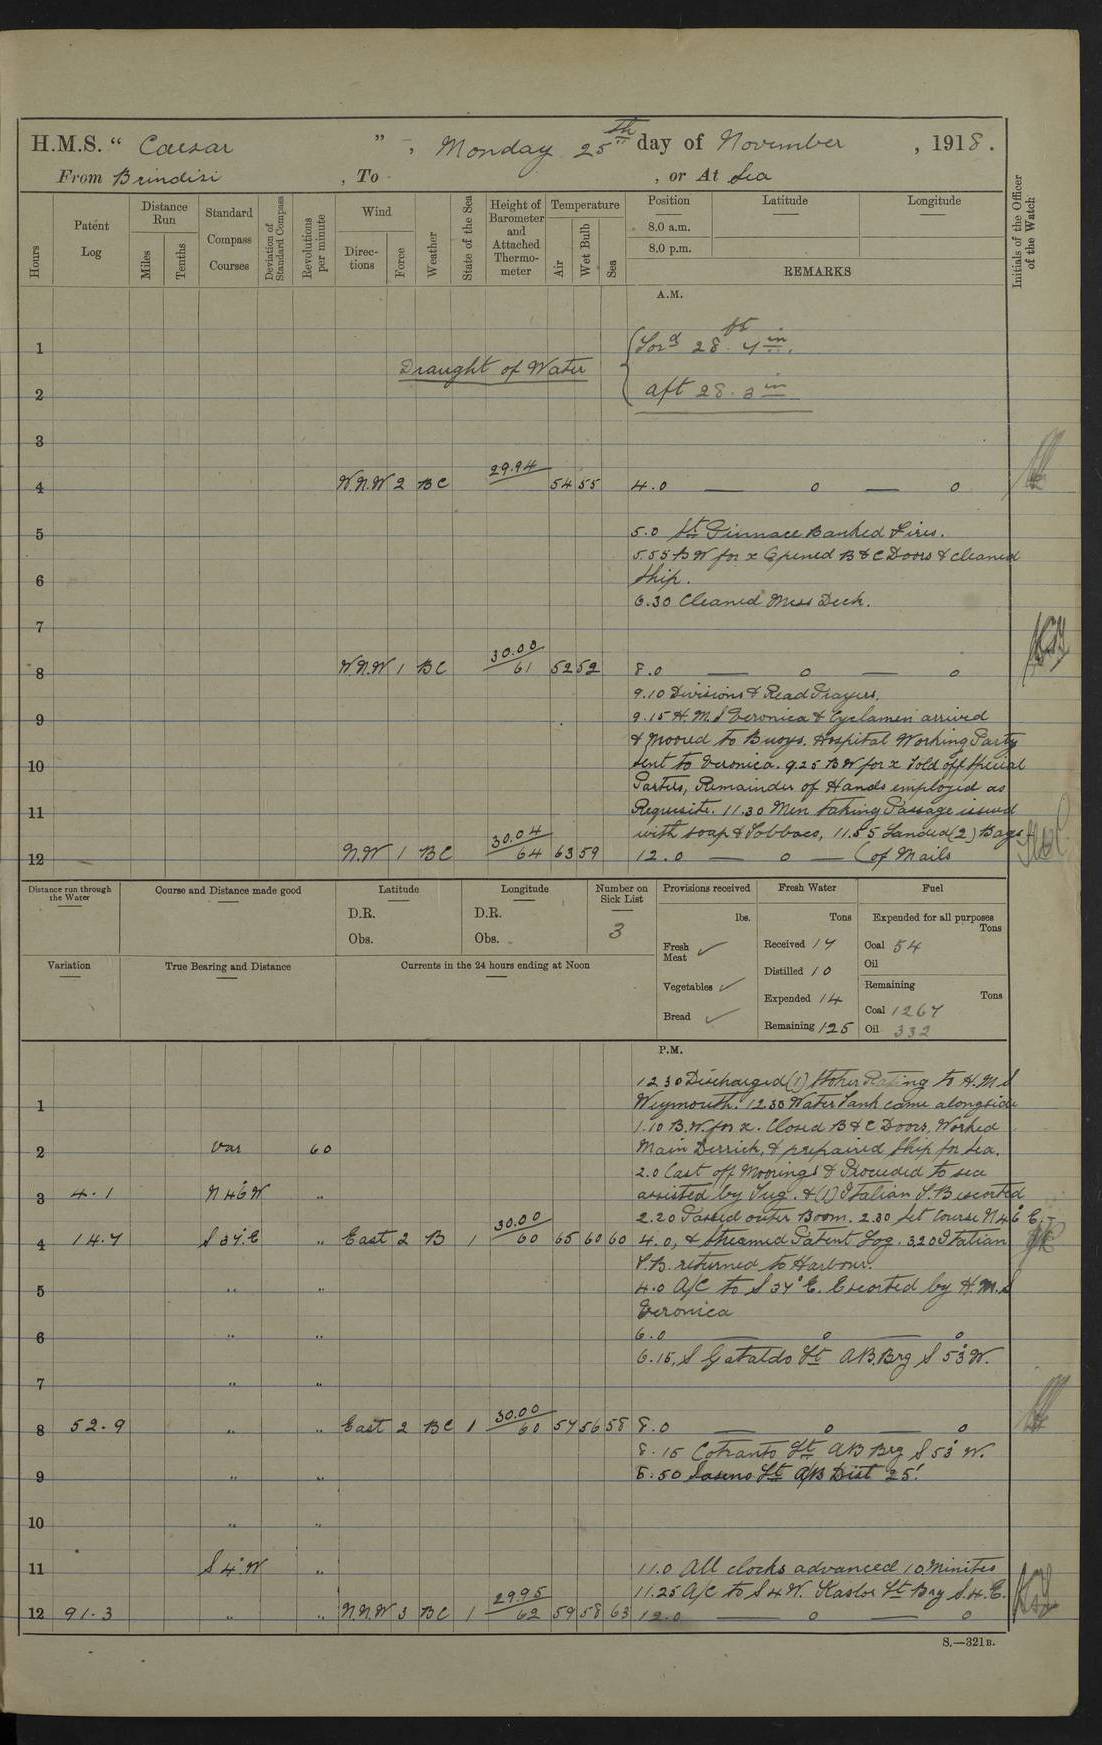 H.M.S. “ Caesar ” , Monday 25th day of November , 1918.
From Brindisi , To , or At Sea
Hours
Patent Log
Distance Run
Miles
Tenths
Standard Compass Courses
Deviation of Standard Compass
Revolutions per minute
Wind
Direc-tions
Force
Weather
State of the Sea
Height of Barometer and Attached Thermo-meter
Temperature
Air
Wet Bulb
Sea
Position Latitude Longitude
8.0 a.m.
8.0 p.m.
REMARKS
Initials of the Officer of the Watch
A.M.
1 Ford 28ft 4in.
Draught of Water
2 aft 28. 3in
3
4 W.N.W 2 BC 29.94 54 55 4.0 — o — o
5 5.0 St Pinnace Banked Fires.
5.55 B W for x Opened B & C Doors & cleaned
6 Ship.
6.30 Cleaned Mess Deck.
7
8 W.N.W 1 BC 30.00/61 52 52 8.0 — o — o
9.10 Divisions & Read Prayers.
9 9.15 H.M.S Veronica & Cyclamen arrived
& moored to Buoys. Hospital Working Party
10 sent to Veronica. 9.25 B W for x Told off Special
Parties, Remainder of Hands employed as
11 Requisite. 11.30 Men taking Passage issued
with soap & Tobbaco, 11.55 Landed (2) Bags
12 N.W 1 BC 30.04/64 63 59 12.0 — o — (of Mails
Distance run through the Water
Course and Distance made good
Latitude
D.R.
Obs.
Longitude
D.R.
Obs.
Number on Sick List
3
Provisions received
lbs.
Fresh Meat ✓
Vegetables ✓
Bread ✓
Fresh Water
Tons
Received 17
Distilled 10
Expended 14
Remaining 125
Fuel
Expended for all purposes
Tons
Coal 54
Oil
Remaining
Tons
Coal 1267
Oil 332
Variation
True Bearing and Distance
Currents in the 24 hours ending at Noon
P.M.
12.30 Discharged (1) Stoker Rating to H.M.S
1 Weymouth. 12.30 Water Tank came alongside
1.10 B.W. for x. Closed B & C Doors, Worked
2 Var 60 Main Derrick, & prepaired Ship for sea.
2.0 Cast off Moorings & Proceeded to sea
3 4.1 N 46° W „ assisted by Tug. & (1) Italian T.B escorted
2.20 Passed outer Boom. 2.30 Set Course N 46° E.
4 14.7 S 37° E „ East 2 B 1 30.00/60 65 60 60 4.0, & streamed Patent Log. 3.20 Italian
T.B. returned to Harbour.
5 „ „ 4.0 A/C to S 37° E. Escorted by H.M.S
Veronica
6 „ „ 6.0 — o — o
6.15, S Gataldo Lt AB. Brg S 53° W.
7 „ „
8 52.9 „ „ East 2 BC 1 30.00/60 57 56 58 8.0 — o — o
8.15 Cotranto Lt AB Brg S 53° W.
9 „ „ 8.50 Saseno Lt A/B Dist 25'.
10 „ „
11 S 4° W „ 11.0 All clocks advanced 10 Minites
11.25 A/C to S 4 W. Kastor Lt Brg S. 4. E.
12 91.3 „ „ N.N.W 3 BC 1 29.95/62 59 58 63 12.0 — o — o
S.—321B.